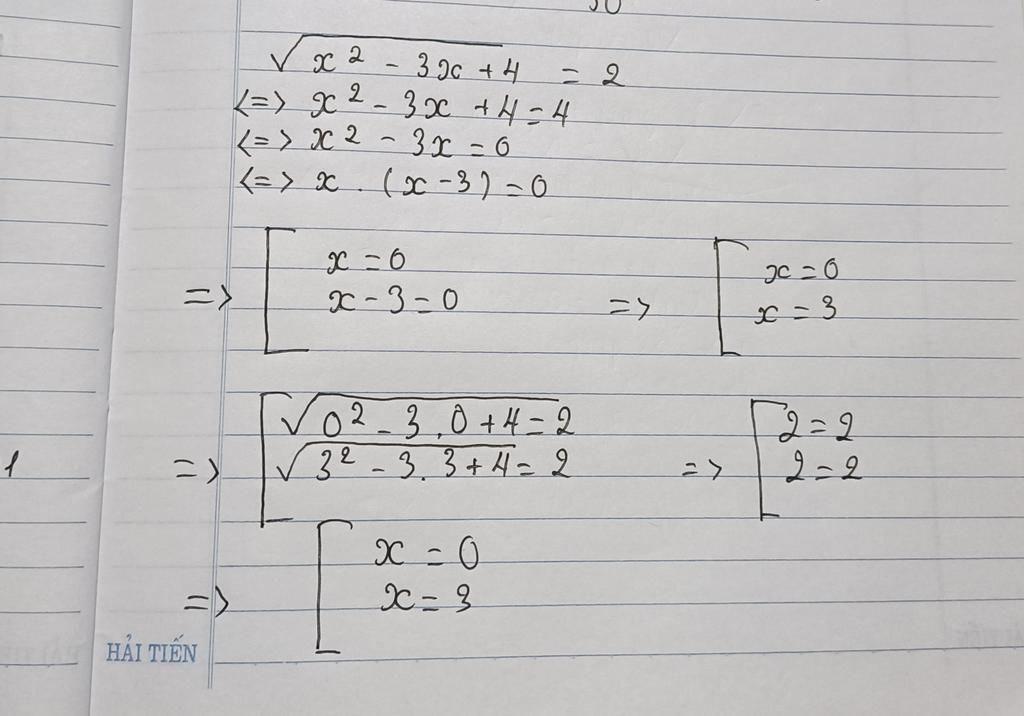 √x² - 3x + 4 = 2
<=> x² - 3x + 4 = 4
<=> x² - 3x = 0
<=> x . (x - 3) = 0
=> [ x = 0
x - 3 = 0
=> [ x = 0
x = 3
=> [ √0² - 3 . 0 + 4 = 2
√3² - 3 . 3 + 4 = 2
=> [ 2 = 2
2 = 2
=> [ x = 0
x = 3
1
HẢI TIẾN